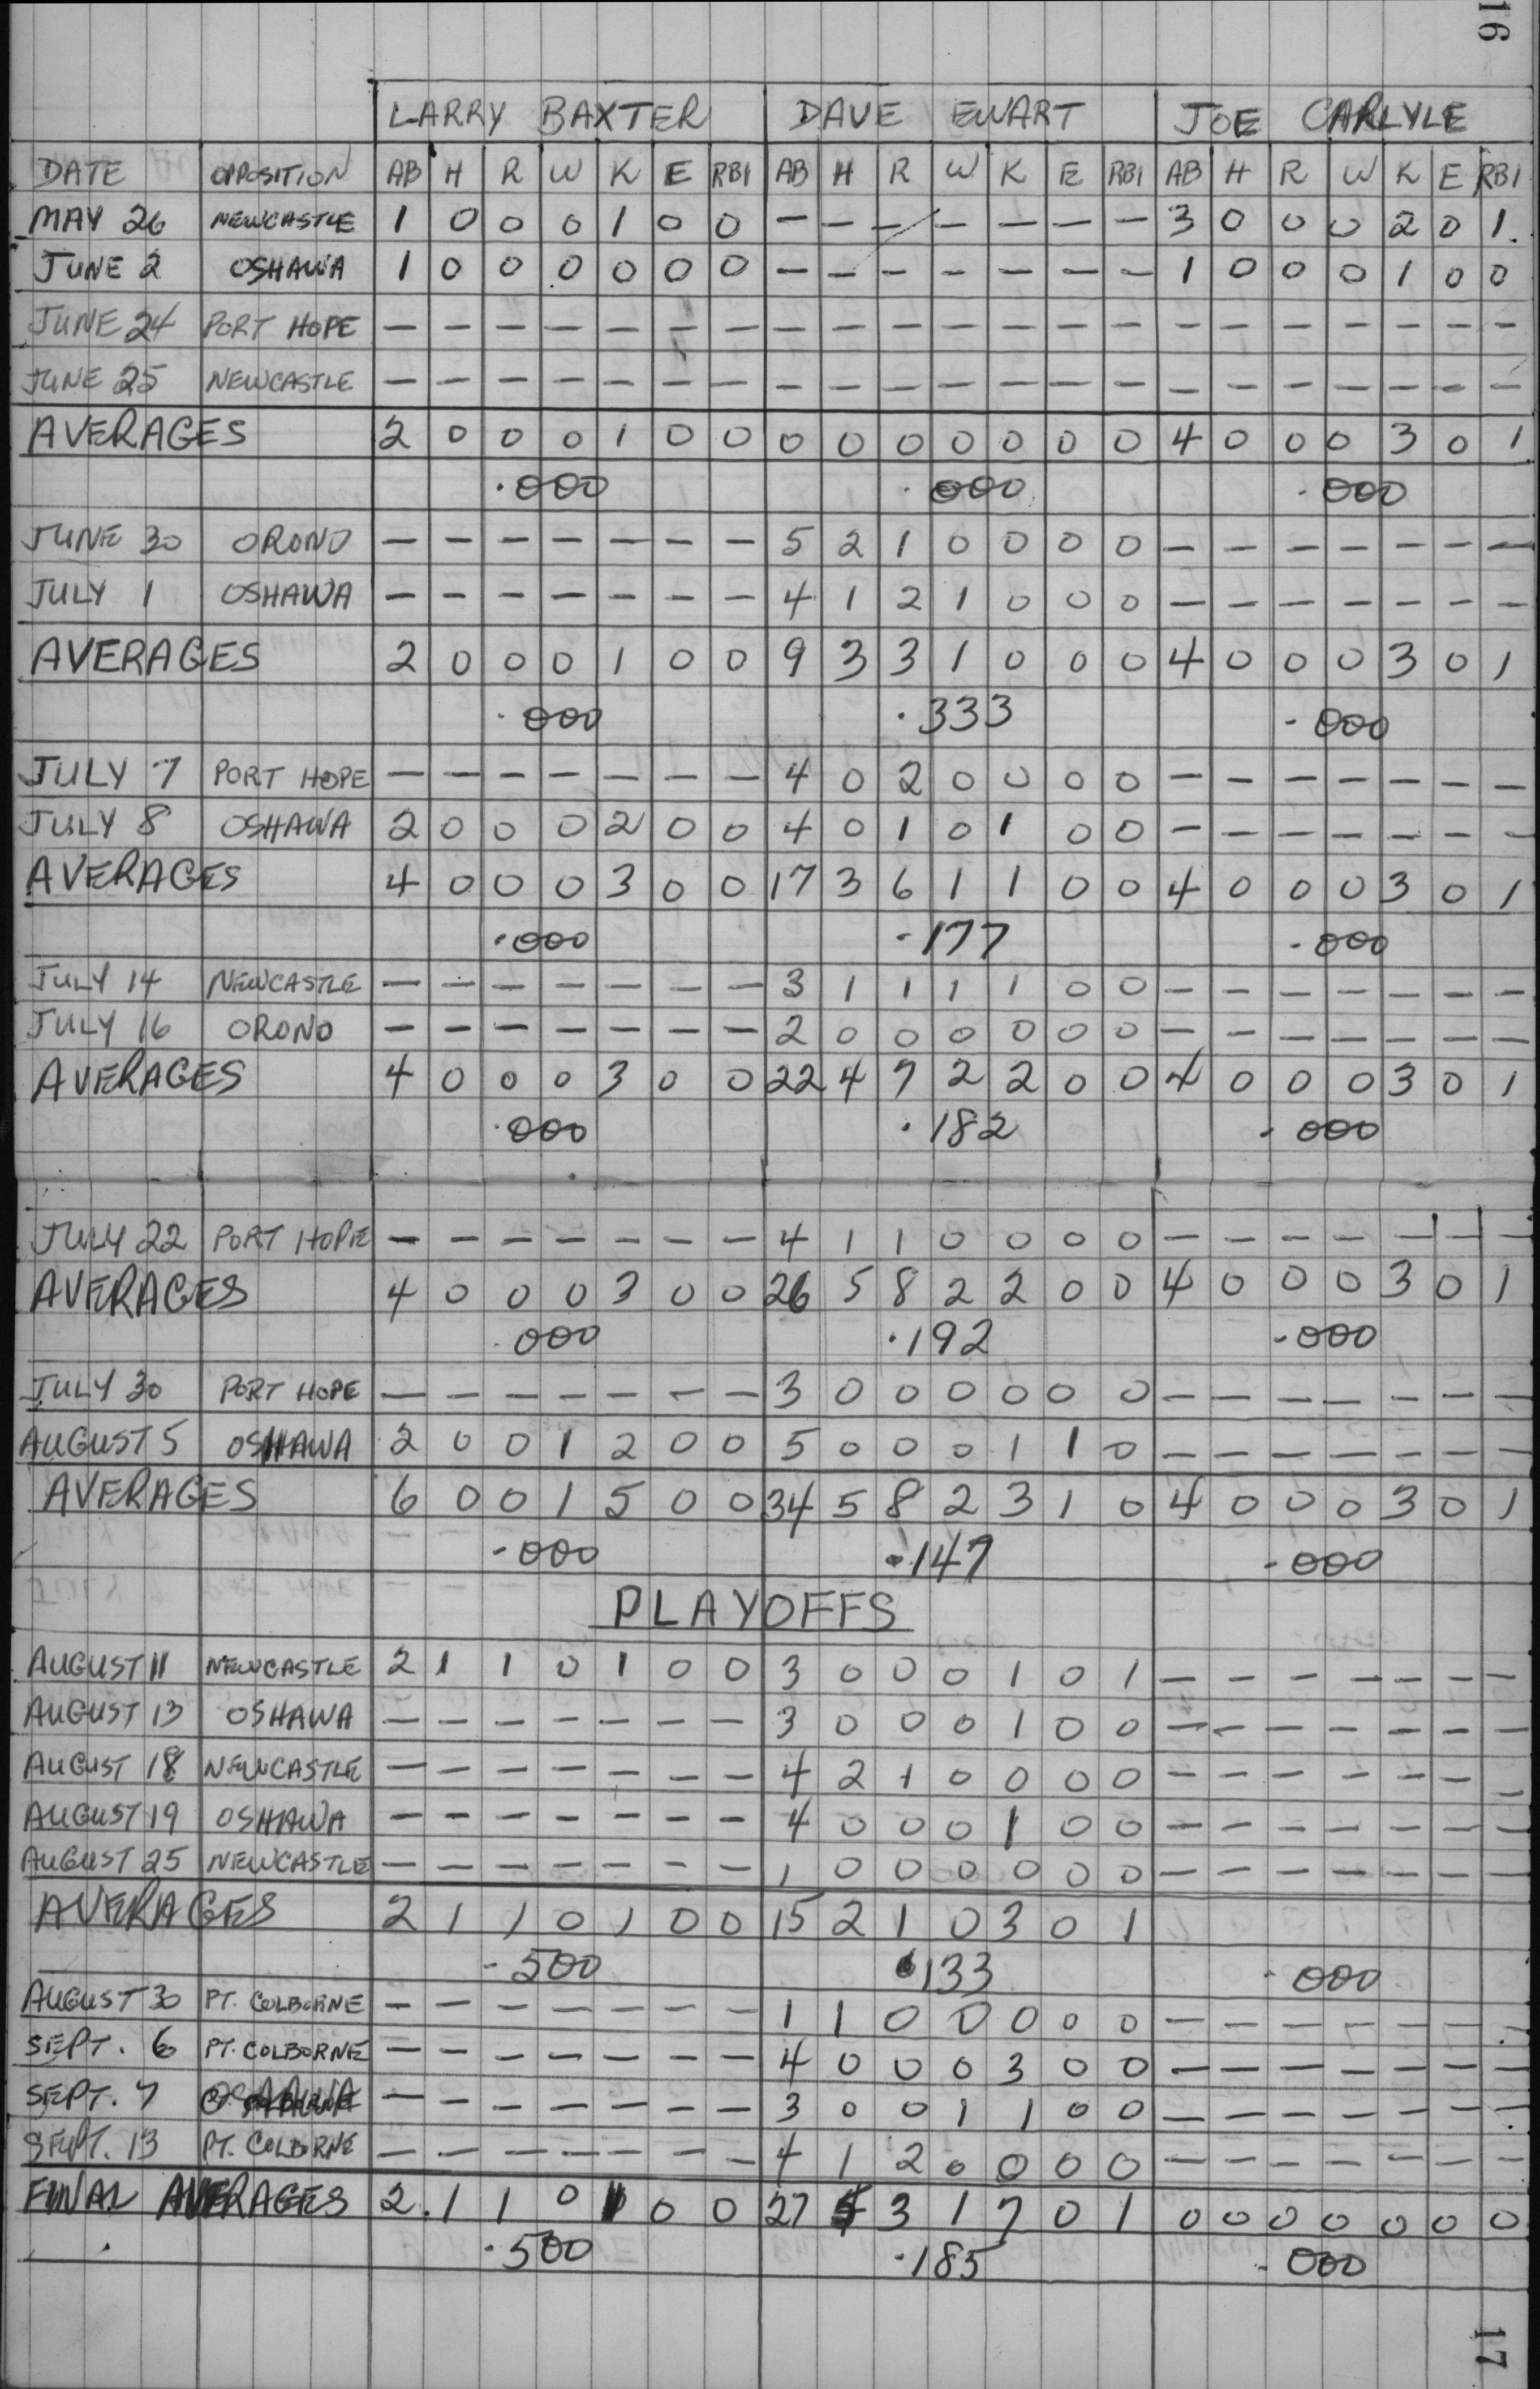 16
LARRY BAXTER DAVE EWART JOE CARLYLE
DATE OPPOSITION AB H R W K E RBI AB H R W K E RBI AB H R W K E RBI
MAY 26 NEWCASTLE 1 0 0 0 1 0 0 — — — — — — — 3 0 0 0 2 0 1
JUNE 2 OSHAWA 1 0 0 0 0 0 0 — — — — — — — 1 0 0 0 1 0 0
JUNE 24 PORT HOPE — — — — — — — — — — — — — — — — — — — — —
JUNE 25 NEWCASTLE — — — — — — — — — — — — — — — — — — — — —
AVERAGES 2 0 0 0 1 0 0 0 0 0 0 0 0 0 4 0 0 0 3 0 1
.000 .000 .000
JUNE 30 ORONO — — — — — — — 5 2 1 0 0 0 0 — — — — — — —
JULY 1 OSHAWA — — — — — — — 4 1 2 1 0 0 0 — — — — — — —
AVERAGES 2 0 0 0 1 0 0 9 3 3 1 0 0 0 4 0 0 0 3 0 1
.000 .333 .000
JULY 7 PORT HOPE — — — — — — — 4 0 2 0 0 0 0 — — — — — — —
JULY 8 OSHAWA 2 0 0 0 2 0 0 4 0 1 0 1 0 0 — — — — — — —
AVERAGES 4 0 0 0 3 0 0 17 3 6 1 1 0 0 4 0 0 0 3 0 1
.000 .177 .000
JULY 14 NEWCASTLE — — — — — — — 3 1 1 1 1 0 0 — — — — — — —
JULY 16 ORONO — — — — — — — 2 0 0 0 0 0 0 — — — — — — —
AVERAGES 4 0 0 0 3 0 0 22 4 7 2 2 0 0 4 0 0 0 3 0 1
.000 .182 .000
JULY 22 PORT HOPE — — — — — — — 4 1 1 0 0 0 0 — — — — — — —
AVERAGES 4 0 0 0 3 0 0 26 5 8 2 2 0 0 4 0 0 0 3 0 1
.000 .192 .000
JULY 30 PORT HOPE — — — — — — — 3 0 0 0 0 0 0 — — — — — — —
AUGUST 5 OSHAWA 2 0 0 1 2 0 0 5 0 0 0 1 1 0 — — — — — — —
AVERAGES 6 0 0 1 5 0 0 34 5 8 2 3 1 0 4 0 0 0 3 0 1
.000 .147 .000
PLAYOFFS
AUGUST 11 NEWCASTLE 2 1 1 0 1 0 0 3 0 0 0 1 0 1 — — — — — — —
AUGUST 13 OSHAWA — — — — — — — 3 0 0 0 1 0 0 — — — — — — —
AUGUST 18 NEWCASTLE — — — — — — — 4 2 1 0 0 0 0 — — — — — — —
AUGUST 19 OSHAWA — — — — — — — 4 0 0 0 1 0 0 — — — — — — —
AUGUST 25 NEWCASTLE — — — — — — — 1 0 0 0 0 0 0 — — — — — — —
AVERAGES 2 1 1 0 1 0 0 15 2 1 0 3 0 1
.500 .133 .000
AUGUST 30 PT. COLBORNE — — — — — — — 1 1 0 0 0 0 0 — — — — — — —
SEPT. 6 PT. COLBORNE — — — — — — — 4 0 0 0 3 0 0 — — — — — — —
SEPT. 7 OSHAWA — — — — — — — 3 0 0 1 1 0 0 — — — — — — —
SEPT. 13 PT. COLBORNE — — — — — — — 4 1 2 0 0 0 0 — — — — — — —
FINAL AVERAGES 2 1 1 0 1 0 0 27 5 3 1 7 0 1 0 0 0 0 0 0 0
.500 .185 .000
17